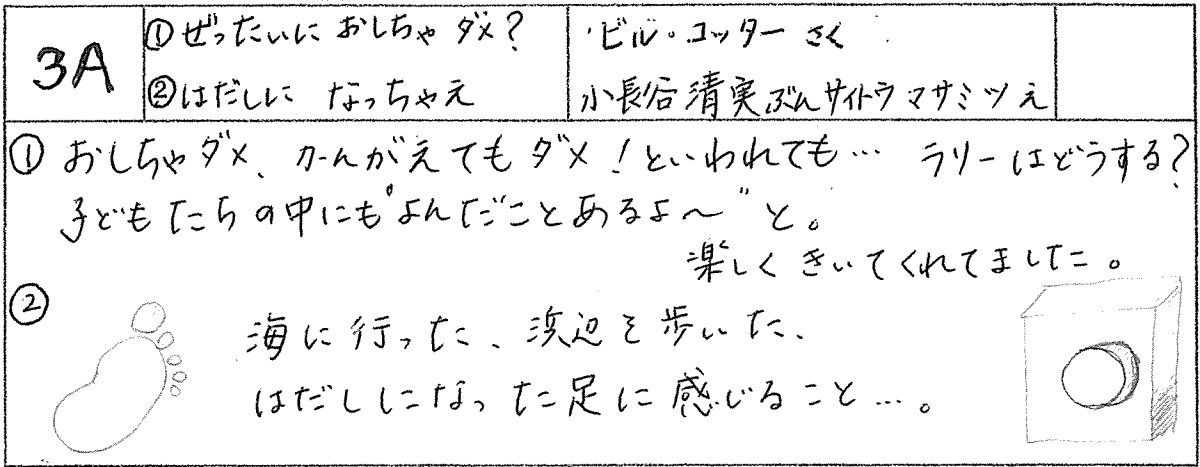 3A
①ぜったいに おしちゃ ダメ?
②はだしに なっちゃえ
ビル・コッター さく
小長谷清実ぶん サイトウマサミツ え
① おしちゃダメ、かんがえてもダメ!といわれても… ラリーはどうする?
子どもたちの中にも"よんだことあるよ〜"と。
楽しく きいてくれてました。
②
海に行った、浜辺を歩いた、
はだしになった足に感じること…。